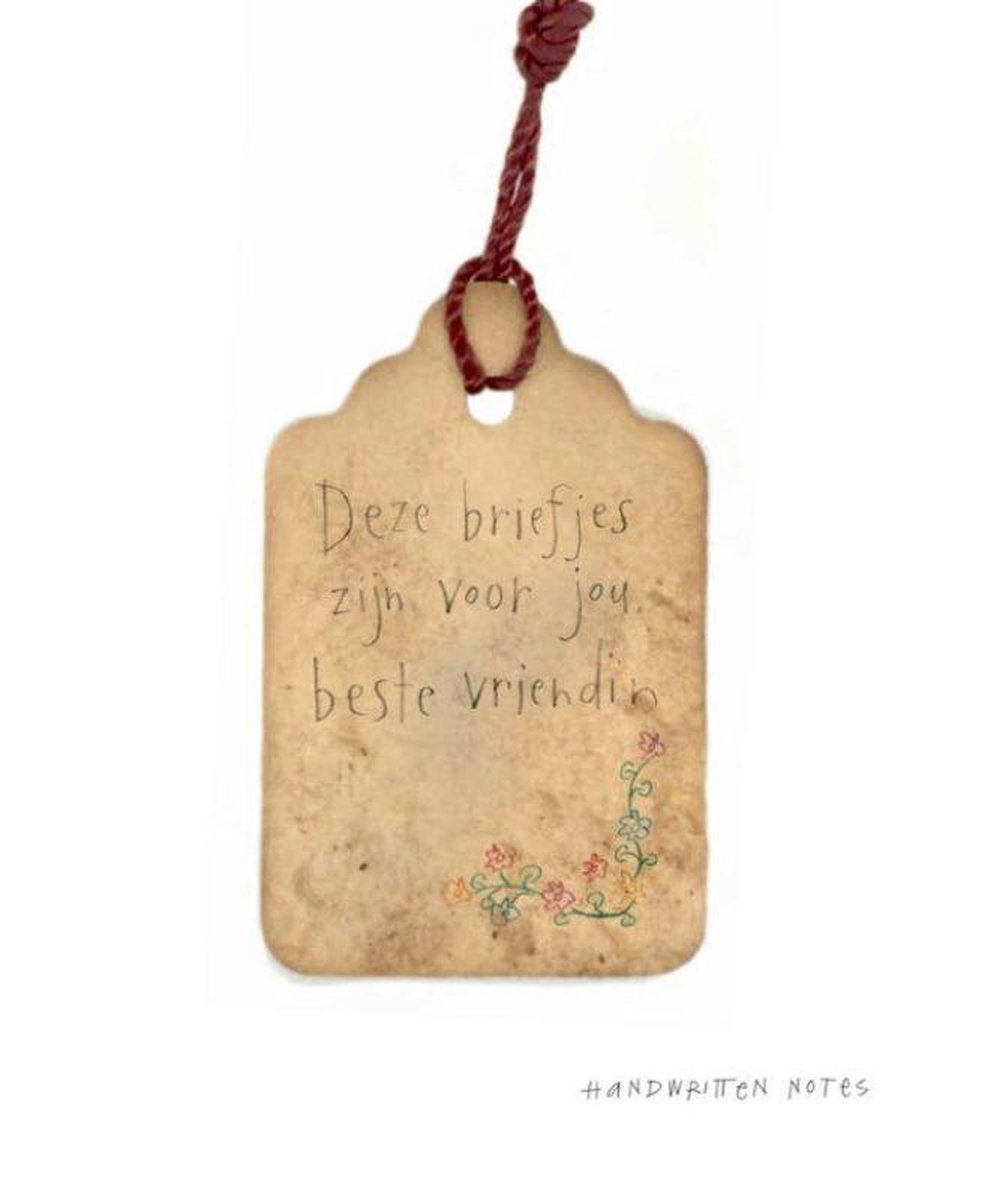 Deze briefjes
zijn voor jou
beste vriendin
HANDWRITTEN NOTES